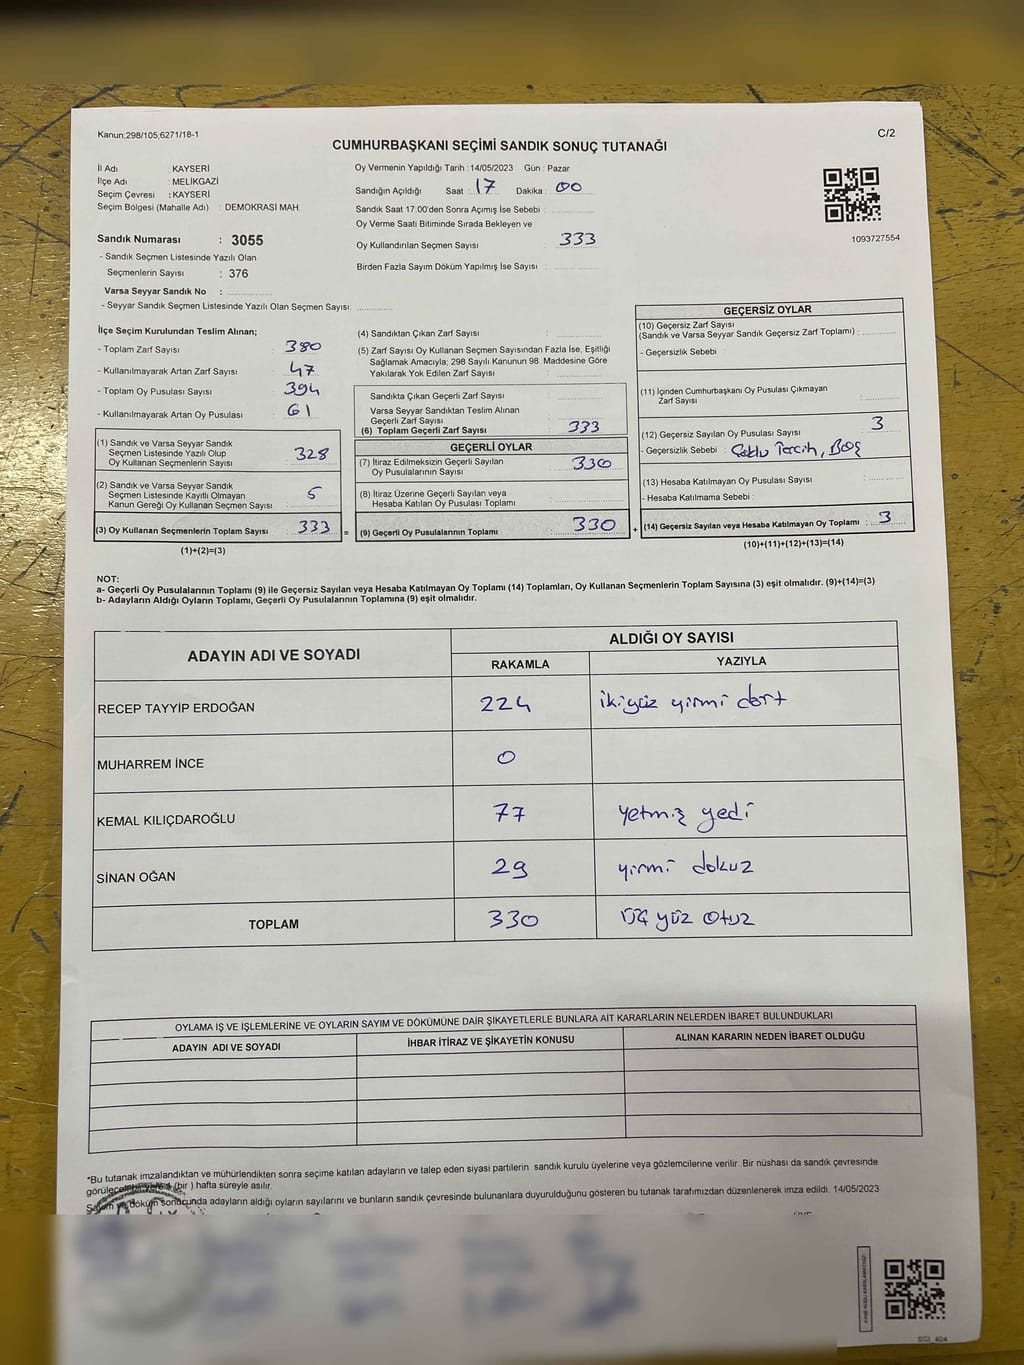 Kanun;298/105;6271/18-1
C/2
CUMHURBAŞKANI SEÇİMİ SANDIK SONUÇ TUTANAĞI
İl Adı : KAYSERİ
İlçe Adı : MELİKGAZİ
Seçim Çevresi : KAYSERİ
Seçim Bölgesi (Mahalle Adı) : DEMOKRASİ MAH.
Sandık Numarası : 3055
- Sandık Seçmen Listesinde Yazılı Olan
Seçmenlerin Sayısı : 376
Varsa Seyyar Sandık No :
- Seyyar Sandık Seçmen Listesinde Yazılı Olan Seçmen Sayısı:
Oy Vermenin Yapıldığı Tarih : 14/05/2023 Gün : Pazar
Sandığın Açıldığı Saat : 17 Dakika : 00
Sandık Saat 17.00'den Sonra Açımış İse Sebebi :
Oy Verme Saati Bitiminde Sırada Bekleyen ve
Oy Kullandırılan Seçmen Sayısı : 333
Birden Fazla Sayım Döküm Yapılmış İse Sayısı :
1093727554
İlçe Seçim Kurulundan Teslim Alınan;
- Toplam Zarf Sayısı : 380
- Kullanılmayarak Artan Zarf Sayısı : 47
- Toplam Oy Pusulası Sayısı : 394
- Kullanılmayarak Artan Oy Pusulası : 61
(1) Sandık ve Varsa Seyyar Sandık
Seçmen Listesinde Yazılı Olup
Oy Kullanan Seçmenlerin Sayısı : 328
(2) Sandık ve Varsa Seyyar Sandık
Seçmen Listesinde Kayıtlı Olmayan
Kanun Gereği Oy Kullanan Seçmen Sayısı : 5
(3) Oy Kullanan Seçmenlerin Toplam Sayısı : 333 =
(1)+(2)=(3)
(4) Sandıktan Çıkan Zarf Sayısı :
(5) Zarf Sayısı Oy Kullanan Seçmen Sayısından Fazla İse, Eşitliği
Sağlamak Amacıyla; 298 Sayılı Kanunun 98. Maddesine Göre
Yakılarak Yok Edilen Zarf Sayısı :
Sandıkta Çıkan Geçerli Zarf Sayısı :
Varsa Seyyar Sandıktan Teslim Alınan
Geçerli Zarf Sayısı :
(6) Toplam Geçerli Zarf Sayısı : 333
GEÇERLİ OYLAR
(7) İtiraz Edilmeksizin Geçerli Sayılan
Oy Pusulalarının Sayısı : 330
(8) İtiraz Üzerine Geçerli Sayılan veya
Hesaba Katılan Oy Pusulası Toplamı :
(9) Geçerli Oy Pusulalarının Toplamı : 330 +
GEÇERSİZ OYLAR
(10) Geçersiz Zarf Sayısı
(Sandık ve Varsa Seyyar Sandık Geçersiz Zarf Toplamı) :
- Geçersizlik Sebebi :
(11) İçinden Cumhurbaşkanı Oy Pusulası Çıkmayan
Zarf Sayısı :
(12) Geçersiz Sayılan Oy Pusulası Sayısı : 3
- Geçersizlik Sebebi : Çoklu Tercih, Boş
(13) Hesaba Katılmayan Oy Pusulası Sayısı :
- Hesaba Katılmama Sebebi :
(14) Geçersiz Sayılan veya Hesaba Katılmayan Oy Toplamı : 3
(10)+(11)+(12)+(13)=(14)
NOT:
a- Geçerli Oy Pusulalarının Toplamı (9) ile Geçersiz Sayılan veya Hesaba Katılmayan Oy Toplamı (14) Toplamları, Oy Kullanan Seçmenlerin Toplam Sayısına (3) eşit olmalıdır. (9)+(14)=(3)
b- Adayların Aldığı Oyların Toplamı, Geçerli Oy Pusulalarının Toplamına (9) eşit olmalıdır.
ADAYIN ADI VE SOYADI ALDIĞI OY SAYISI
RAKAMLA YAZIYLA
RECEP TAYYİP ERDOĞAN 224 ikiyüz yirmi dört
MUHARREM İNCE 0
KEMAL KILIÇDAROĞLU 77 yetmiş yedi
SİNAN OĞAN 29 yirmi dokuz
TOPLAM 330 üç yüz otuz
OYLAMA İŞ VE İŞLEMLERİNE VE OYLARIN SAYIM VE DÖKÜMÜNE DAİR ŞİKAYETLERLE BUNLARA AİT KARARLARIN NELERDEN İBARET BULUNDUKLARI
ADAYIN ADI VE SOYADI İHBAR İTİRAZ VE ŞİKAYETİN KONUSU ALINAN KARARIN NEDEN İBARET OLDUĞU
*Bu tutanak imzalandıktan ve mühürlendikten sonra seçime katılan adayların ve talep eden siyasi partilerin sandık kurulu üyelerine veya gözlemcilerine verilir. Bir nüshası da sandık çevresinde
görülecek bir yere 1 (bir ) hafta süreyle asılır.
Sayım ve döküm sonucunda adayların aldığı oyların sayılarını ve bunların sandık çevresinde bulunanlara duyurulduğunu gösteren bu tutanak tarafımızdan düzenlenerek imza edildi. 14/05/2023